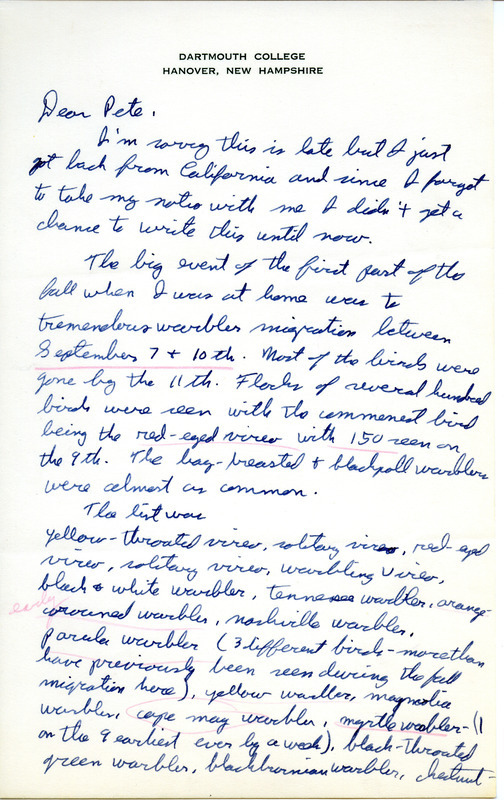 DARTMOUTH COLLEGE
HANOVER, NEW HAMPSHIRE
Dear Pete,
I'm sorry this is late but I just
got back from California and since I forgot
to take my notes with me I didn't get a
chance to write this until now.
The big event of the first part of the
fall when I was at home was the
tremendous warbler migration between
September 7 + 10th. Most of the birds were
gone by the 11th. Flocks of several hundred
birds were seen with the commonest bird
being the red-eyed vireo with 150 seen on
the 9th. The bay-breasted + blackpoll warblers
were almost as common.
The list was
yellow-throated vireo, solitary vireo, red-eyed
vireo, solitary vireo, warbling vireo,
black + white warbler, tennessee warbler, orange-
early
crowned warbler, nashville warbler,
parula warbler (3 different birds - more than
have previously been seen during the fall
migration here), yellow warbler, magnolia
warbler, cape may warbler, myrtle warbler - (1
on the 9 earliest ever by a week), black-throated
green warbler, blackburnian warbler, chestnut-